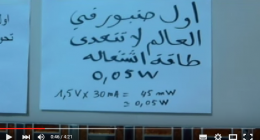 اول صنبور في
العالم لا تتعدى
طاقة اشتغاله
0,05W
1,5V x 30mA = 45 mW
= 0,05W
0:46 / 4:21